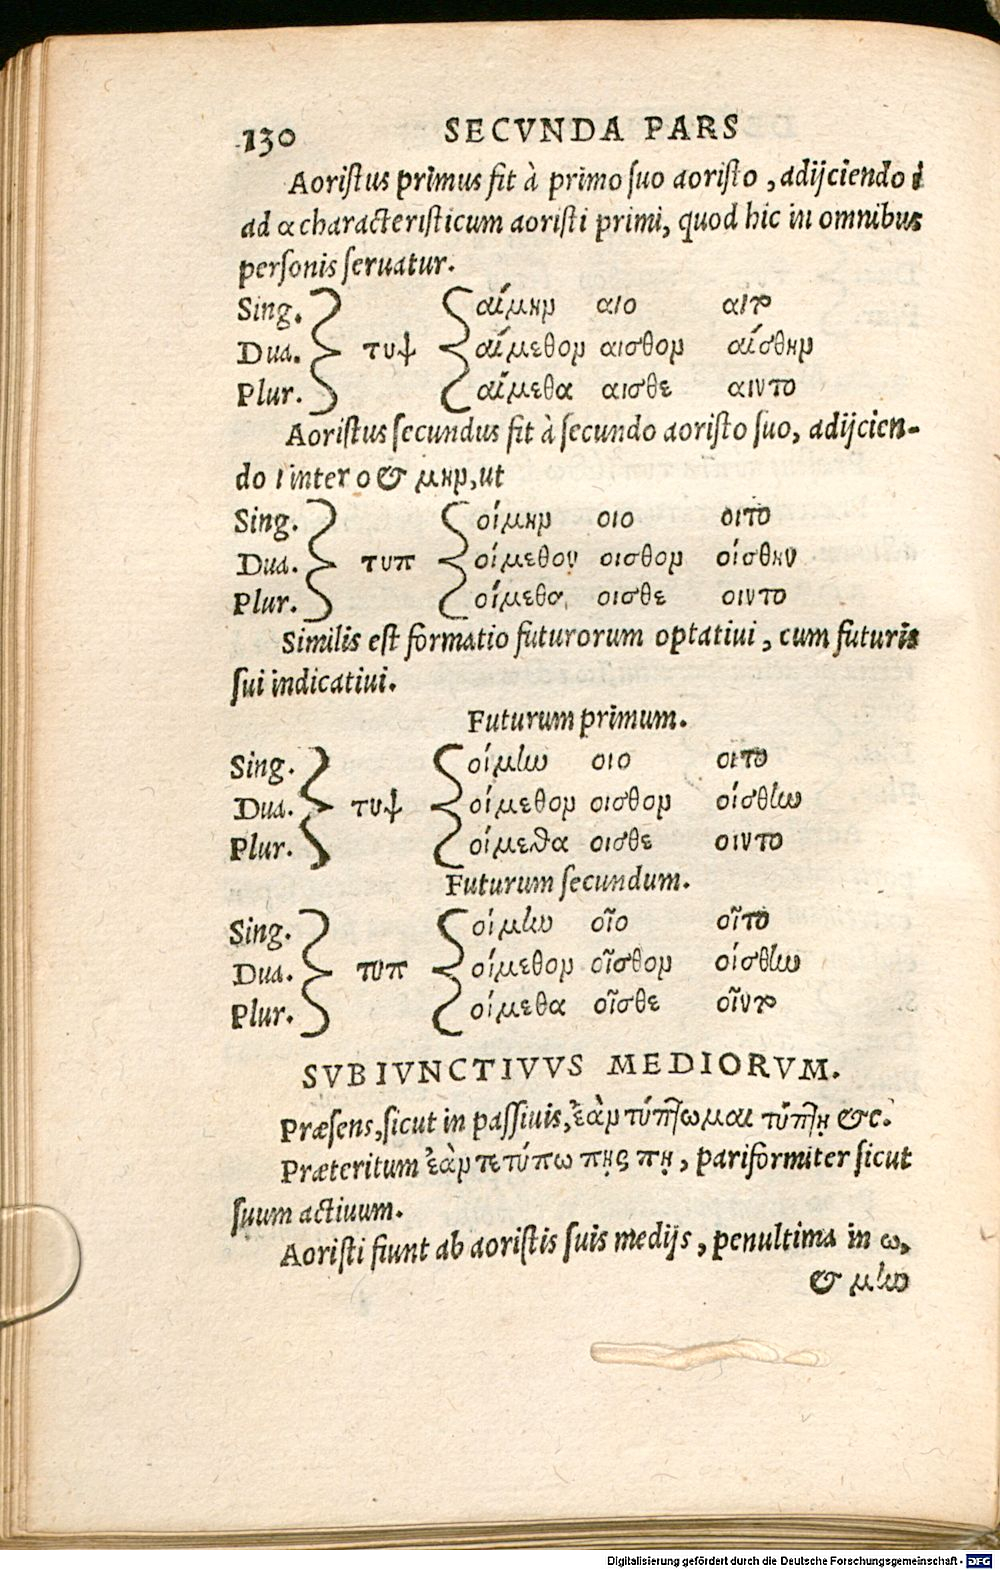 130 SECVNDA PARS
Aoristus primus fit à primo suo aoristo, adijciendo ι
ad α characteristicum aoristi primi, quod hic in omnibus
personis seruatur.
Sing. αίμην αιο αιτο
Dua. τυψ αίμεθον αισθον αίσθην
Plur. αίμεθα αισθε αιντο
Aoristus secundus fit à secundo aoristo suo, adijcien-
do ι inter ο & μην, ut
Sing. οίμην οιο οιτο
Dua. τυπ οίμεθον οισθον οίσθην
Plur. οίμεθα οισθε οιντο
Similis est formatio futurorum optatiui, cum futuris
sui indicatiui.
Futurum primum.
Sing. οίμην οιο οιτο
Dua. τυψ οίμεθον οισθον οίσθην
Plur. οίμεθα οισθε οιντο
Futurum secundum.
Sing. οίμην οῖο οῖτο
Dua. τυπ οίμεθον οῖσθον οίσθην
Plur. οίμεθα οῖσθε οῖντο
SVBIVNCTIVVS MEDIORVM.
Præsens, sicut in passiuis, ἐὰν τύπτωμαι τύπτῃ &c.
Præteritum ἐὰν πετύπω πῃς πῃ, pariformiter sicut
suum actiuum.
Aoristi fiunt ab aoristis suis medijs, penultima in ω,
& μην
Digitalisierung gefördert durch die Deutsche Forschungsgemeinschaft - DFG